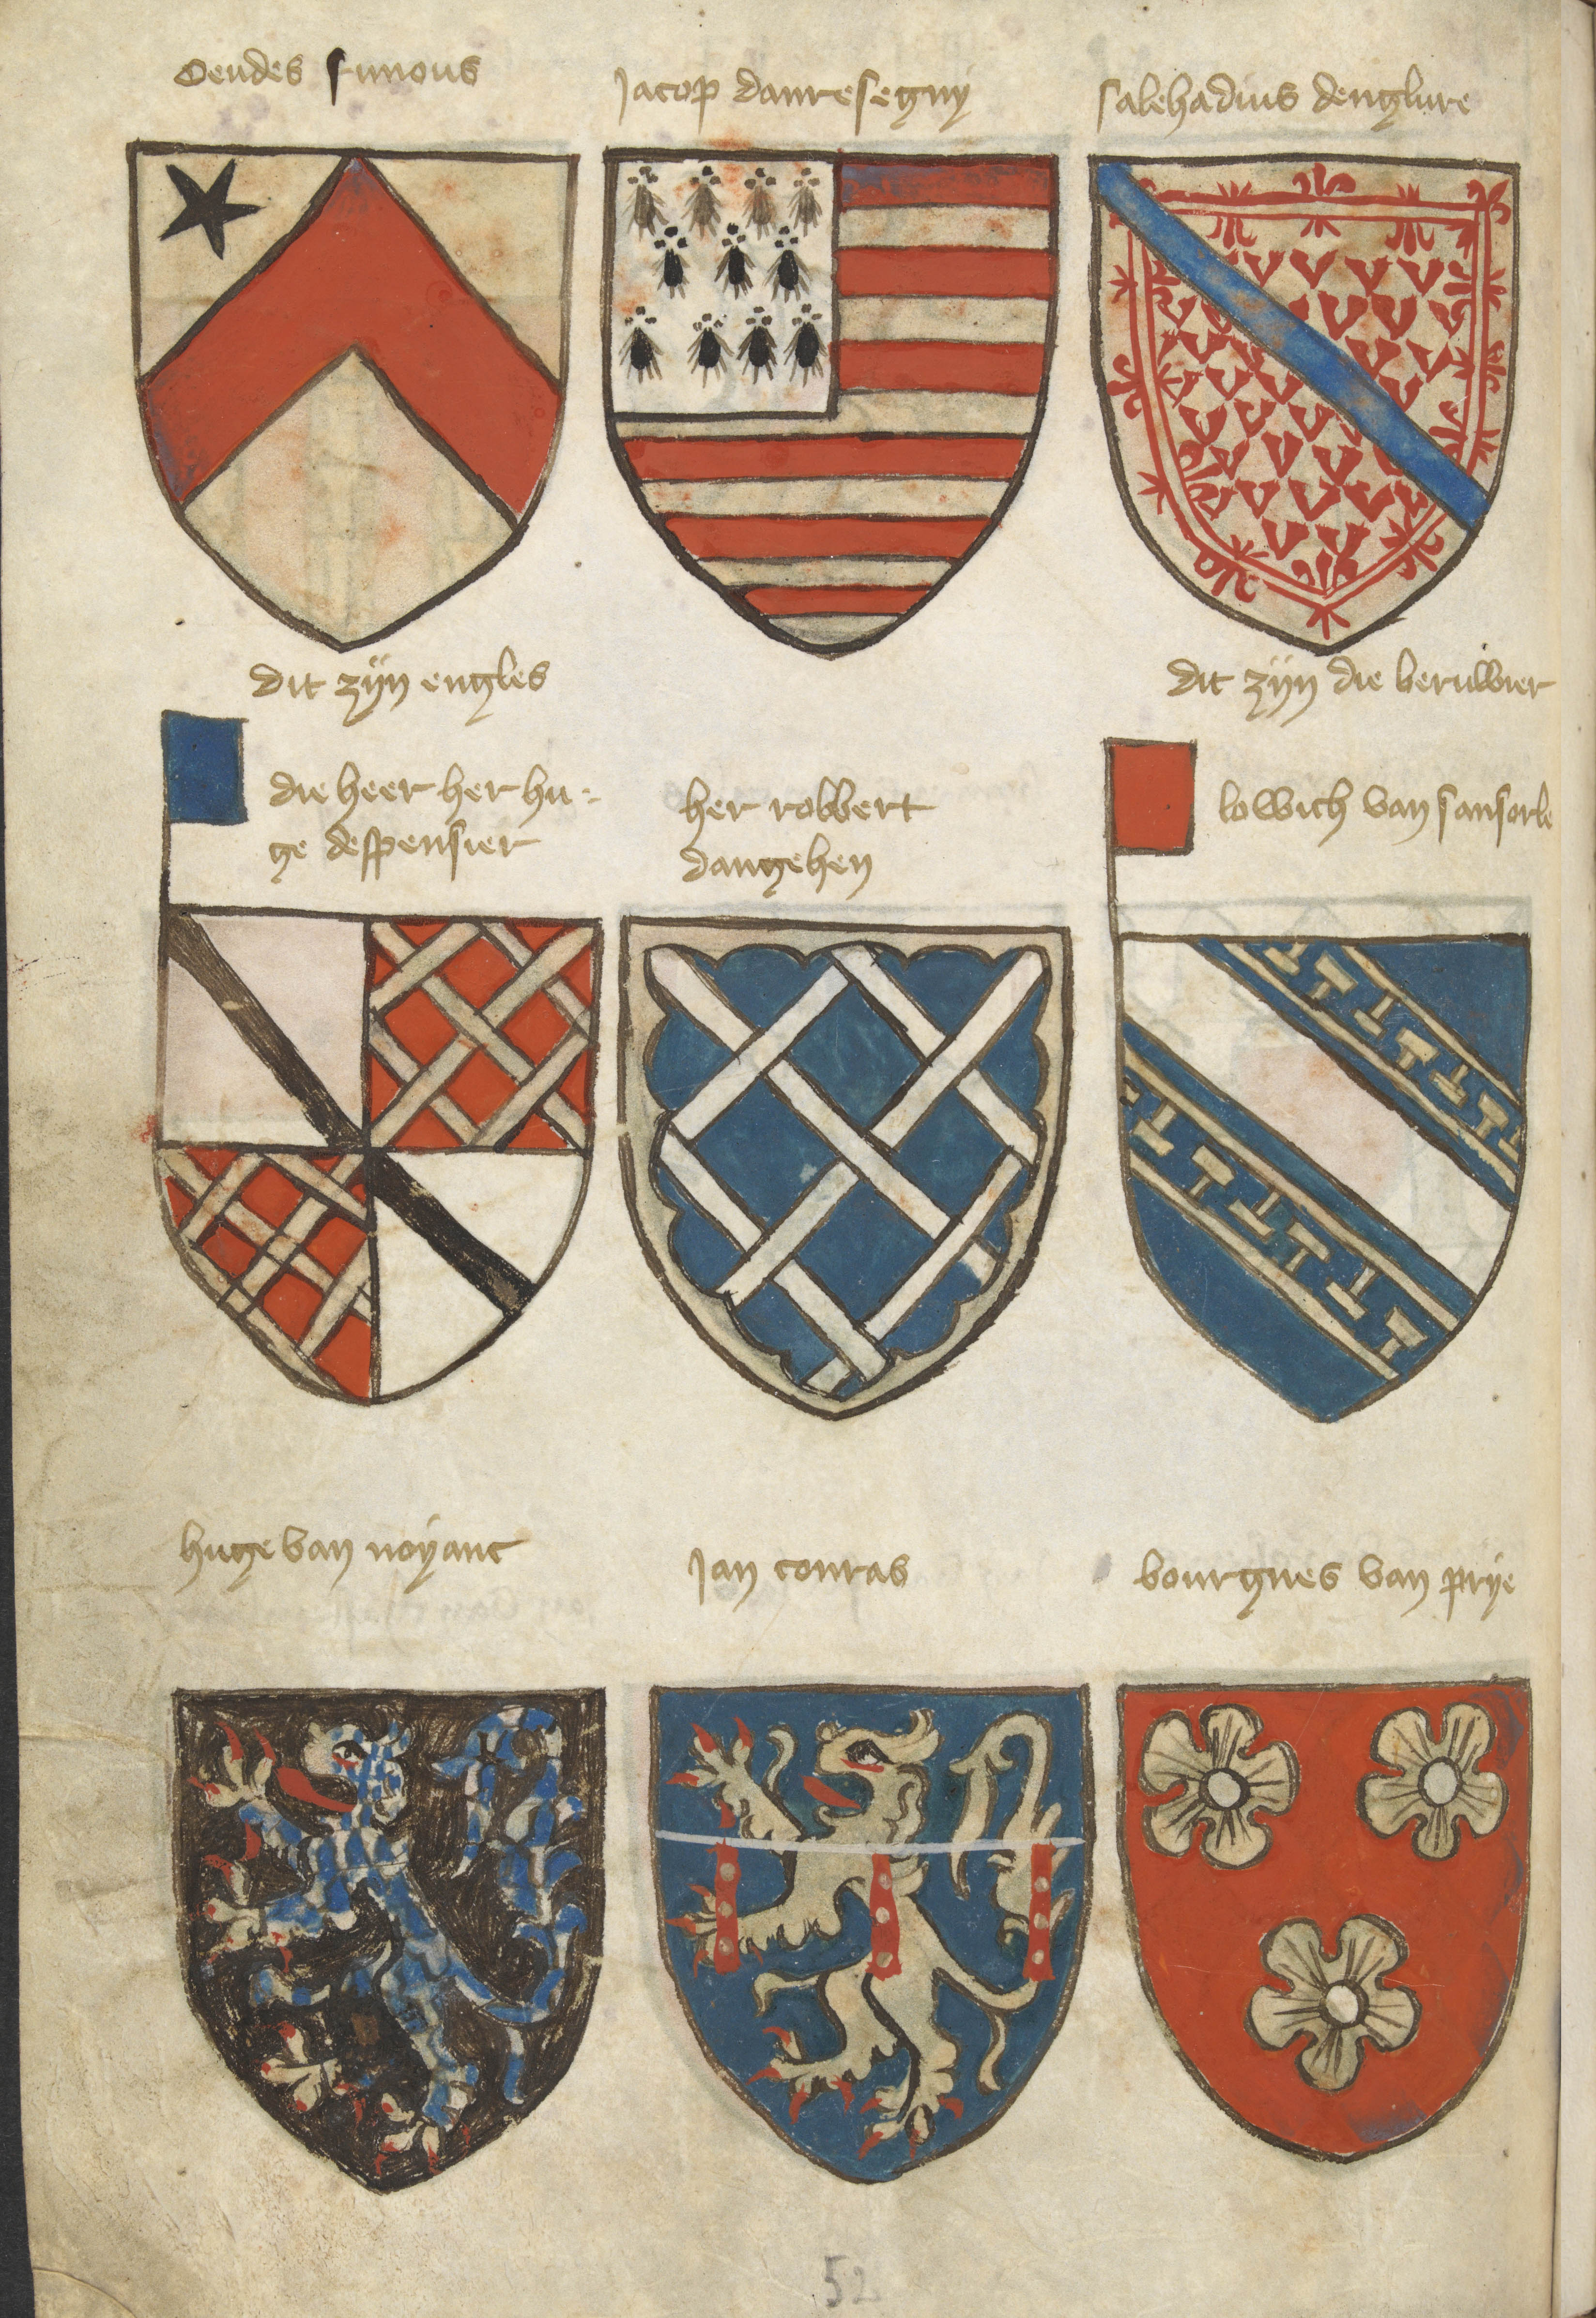 oendes simons
Jacop danresegny
salehadius denglure
dit zijn engles
dit zijn die beruwier
die heer her hu-
ge despensier
her robbert
dangehen
lowich van sansorle
huge van noyanc
Jan contras
bourgnes van prye
52